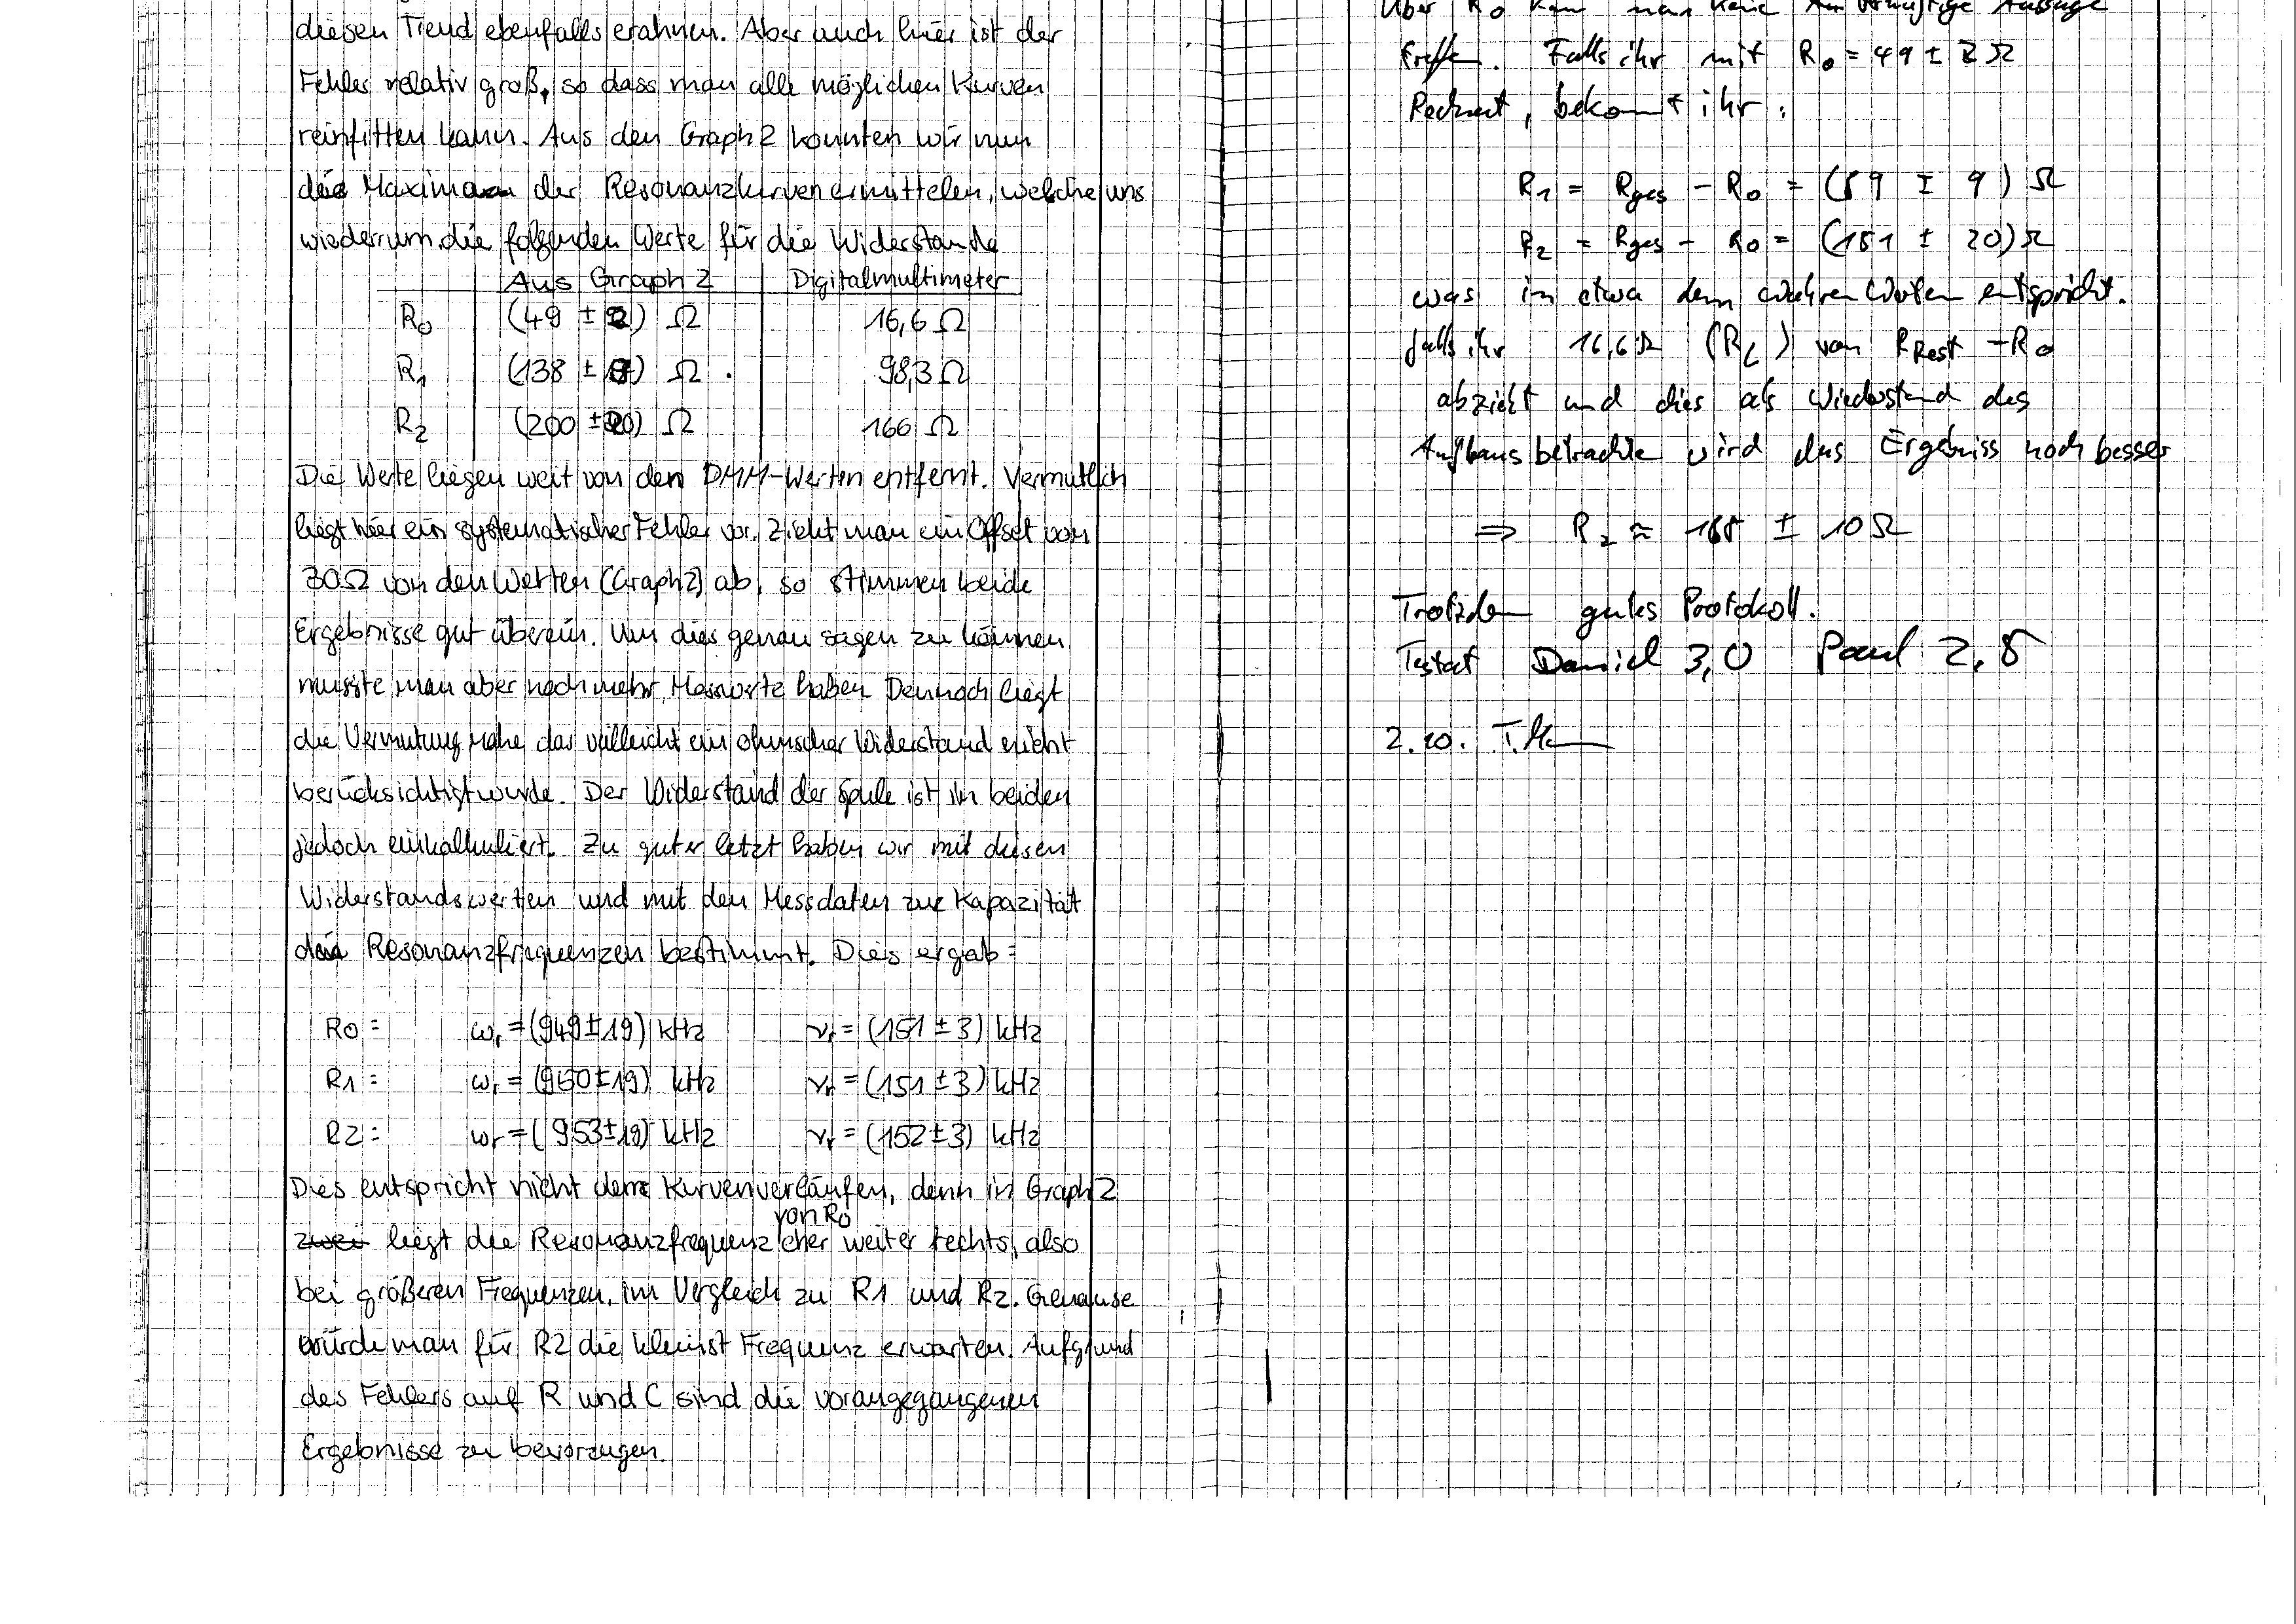 diesen Trend ebenfalls erahnen. Aber auch hier ist der
Fehler relativ groß, so dass man alle möglichen Kurven
reinfitten kann. Aus den Graph 2 konnten wir nun
die Maxima der Resonanzkurven ermittelen, welche uns
wiederrum die folgenden Werte für die Widerstände
Aus Graph 2 Digitalmultimeter
R0 (49 ± 2) Ω 16,6 Ω
R1 (138 ± ) Ω 98,3 Ω
R2 (200 ± 20) Ω 166 Ω
Die Werte liegen weit von den DMM-Werten entfernt. Vermutlich
liegt hier ein systematischer Fehler vor. Zieht man ein Offset von
30Ω von den Werten (Graph 2) ab, so stimmen beide
Ergebnisse gut überein. Um dies genau sagen zu können
müsste man aber noch mehr Messwerte haben. Dennoch liegt
die Vermutung nahe das vielleicht ein ohmscher Widerstand nicht
berücksichtigt wurde. Der Widerstand der Spule ist in beiden
jedoch einkalkuliert. Zu guter letzt haben wir mit diesen
Widerstandswerten und mit den Messdaten zur Kapazität
die Resonanzfrequenzen bestimmt. Dies ergab:
R0: ωr = (949±19) kHz νr = (151 ± 3) kHz
R1: ωr = (950±19) kHz νr = (151 ± 3) kHz
R2: ωr = (953±19) kHz νr = (152 ± 3) kHz
Dies entspricht nicht dem Kurvenverläufen, denn in Graph 2
von R0
zwei liegt die Resonanzfrequenz eher weiter rechts, also
bei größeren Frequenzen, im Vergleich zu R1 und R2. Genause
würde man für R2 die kleinst Frequenz erwarten. Aufgrund
des Fehlers auf R und C sind die vorangegangenen
Ergebnisse zu bevorzugen.
Über R0 kann man keine Aussage
treffen. Falls ihr mit R0 = 49 ± 2 Ω
Rechnet, bekommt ihr:
R1 = Rges - R0 = (89 ± 9) Ω
R2 = Rges - R0 = (151 ± 20) Ω
was in etwa dem wahren Werten entspricht.
falls ihr 16,6 Ω (RL) von RRest - R0
abzieht und dies als Wiederstand des
Aufbaus betrachte wird das Ergebniss noch besser
⇒ R2 ≈ 168 ± 10 Ω
Trotzdem gutes Protokoll.
Testat Daniel 3,0 Paul 2,8
2.10.